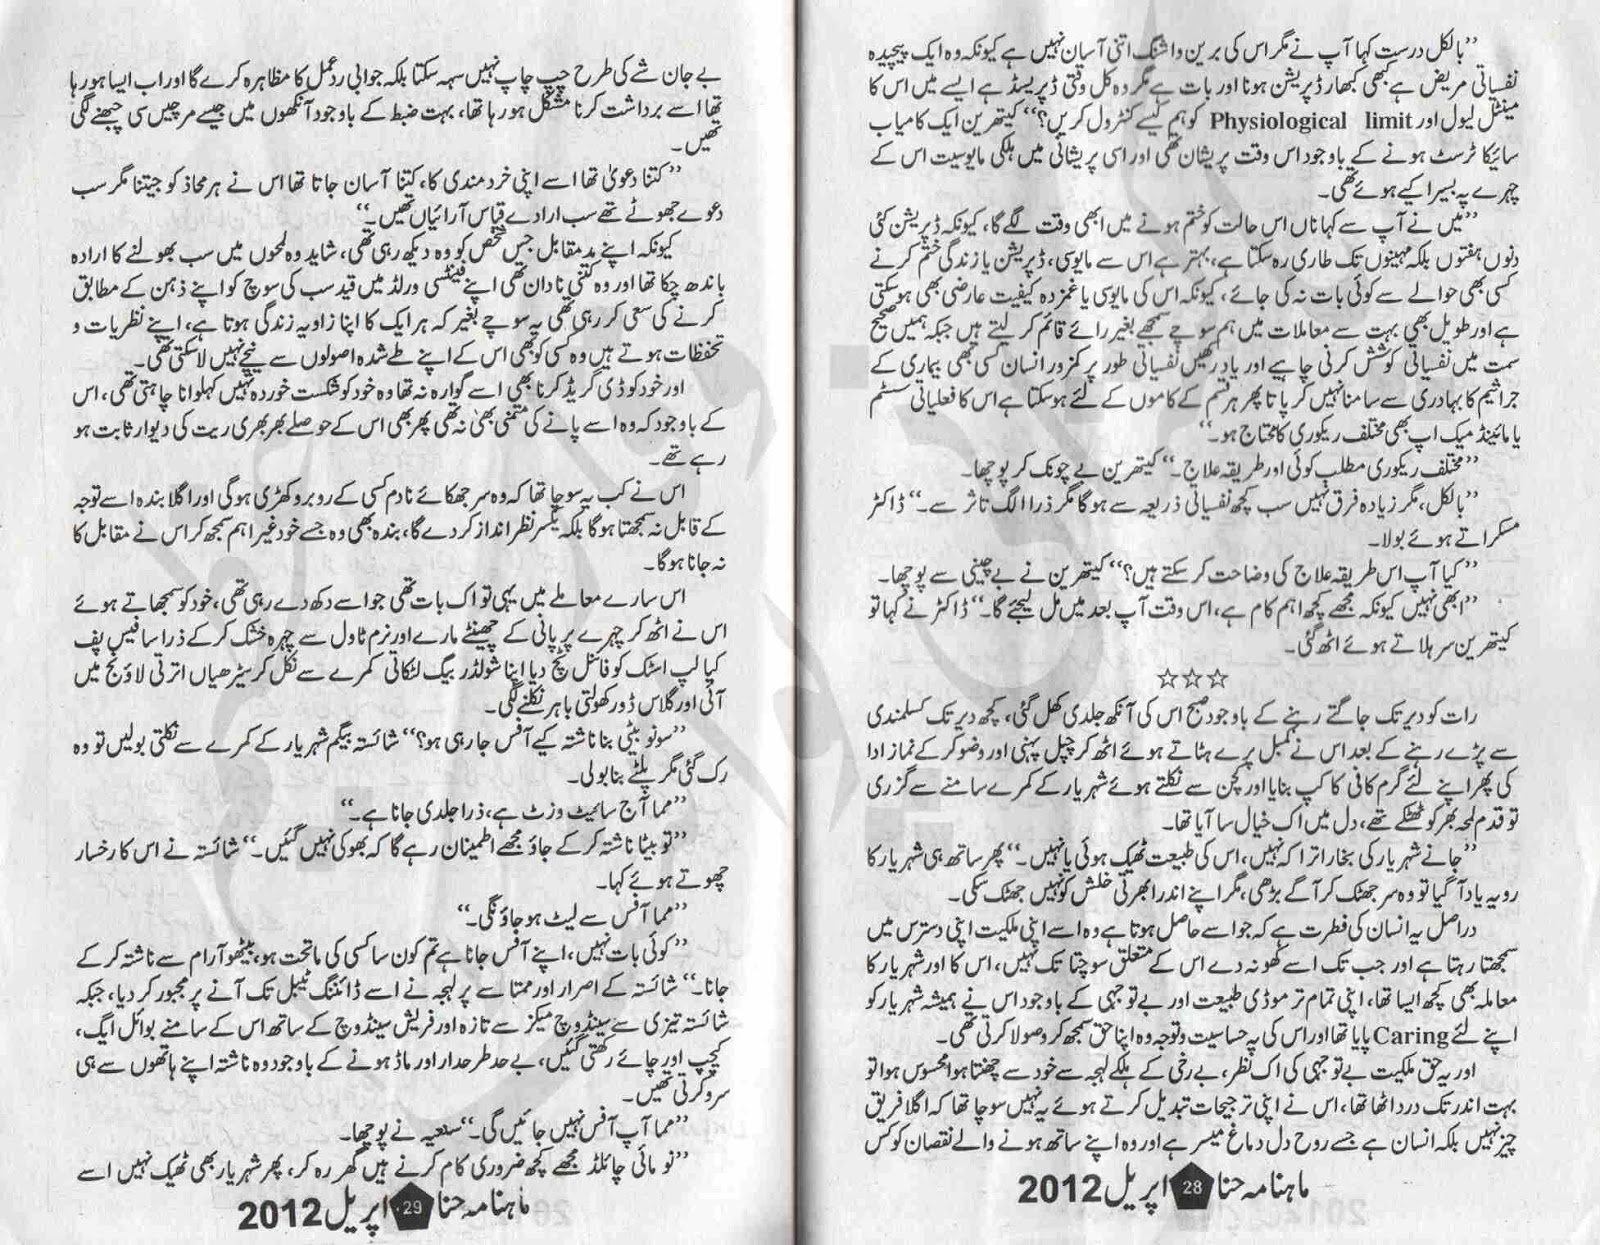 ’’بالکل درست کہا آپ نے مگر اس کی برین واشنگ اتنی آسان نہیں ہے کیونکہ وہ ایک پیچیدہ
نفسیاتی مریض ہے کبھی کبھار ڈپریشن ہونا اور بات ہے مگر وہ کل وقتی ڈپریسڈ ہے ایسے میں اس کا
مینٹل لیول اور Physiological limit کو ہم کیسے کنٹرول کریں؟‘‘ کیتھرین ایک کامیاب
سائیکاٹرسٹ ہونے کے باوجود اس وقت پریشان تھی اور اسی پریشانی میں ہلکی مایوسیت اس کے
چہرے پہ بسیرا کیے ہوئے تھی۔
’’میں نے آپ سے کہا ناں اس حالت کو ختم ہونے میں ابھی وقت لگے گا، کیونکہ ڈپریشن کئی
دنوں ہفتوں بلکہ مہینوں تک طاری رہ سکتا ہے، بہتر ہے اس سے مایوسی، ڈپریشن یا زندگی ختم کرنے
کسی بھی حوالے سے کوئی بات نہ کی جائے، کیونکہ اس کی مایوسی یا غمزدہ کیفیت عارضی بھی ہو سکتی
ہے اور طویل بھی بہت سے معاملات میں ہم سوچے سمجھے بغیر رائے قائم کر لیتے ہیں جبکہ ہمیں صحیح
سمت میں نفسیاتی کوشش کرنی چاہیے اور یاد رکھیں نفسیاتی طور پر کمزور انسان کسی بھی بیماری کے
جراثیم کا بہادری سے سامنا نہیں کر پاتا پھر ہر قسم کے کاموں کے لئے ہو سکتا ہے اس کا فعلیاتی سسٹم
یا مائینڈ میک اپ بھی مختلف ریکوری کا محتاج ہو۔‘‘
’’مختلف ریکوری مطلب کوئی اور طریقہ علاج۔‘‘ کیتھرین نے چونک کر پوچھا۔
’’بالکل، مگر زیادہ فرق نہیں سب کچھ نفسیاتی ذریعہ سے ہوگا مگر ذرا الگ تاثر سے۔‘‘ ڈاکٹر
مسکراتے ہوئے بولا۔
’’کیا آپ اس طریقہ علاج کی وضاحت کر سکتے ہیں؟‘‘ کیتھرین نے بے چینی سے پوچھا۔
’’ابھی نہیں کیونکہ مجھے کچھ اہم کام ہے، اس وقت آپ بعد میں مل لیجئے گا۔‘‘ ڈاکٹر نے کہا تو
کیتھرین سر ہلاتے ہوئے اٹھ گئی۔
☆☆☆
رات کو دیر تک جاگتے رہنے کے باوجود صبح اس کی آنکھ جلدی کھل گئی، کچھ دیر تک کسلمندی
سے پڑے رہنے کے بعد اس نے کمبل پرے ہٹاتے ہوئے اٹھ کر چپل پہنی اور وضو کر کے نماز ادا
کی پھر اپنے لئے گرم کافی کا کپ بنایا اور کچن سے نکلتے ہوئے شہریار کے کمرے سامنے سے گزری
تو قدم لمحہ بھر کو ٹھٹکے تھے، دل میں اک خیال سا آیا تھا۔
’’جانے شہریار کی بخار اترا کہ نہیں، اس کی طبیعت ٹھیک ہوئی یا نہیں۔‘‘ پھر ساتھ ہی شہریار کا
رویہ یاد آ گیا تو وہ سر جھٹک کر آگے بڑھی، مگر اپنے اندر ابھرتی خلش کو نہیں جھٹک سکی۔
دراصل یہ انسان کی فطرت ہے کہ جو اسے حاصل ہوتا ہے وہ اسے اپنی ملکیت اپنی دسترس میں
سمجھتا رہتا ہے اور جب تک اسے کھو نہ دے اس کے متعلق سوچتا تک نہیں، اس کا اور شہریار کا
معاملہ بھی کچھ ایسا تھا، اپنی تمام تر موڈی طبیعت اور بے توجہی کے باوجود اس نے ہمیشہ شہریار کو
اپنے لئے Caring پایا تھا اور اس کی یہ حساسیت و توجہ وہ اپنا حق سمجھ کر وصولا کرتی تھی۔
اور یہ حق ملکیت بے توجہی کی اک نظر، بے رخی کے ہلکے لہجہ سے خود سے چھنتا ہوا محسوس ہوا تو
بہت اندر تک درد اٹھا تھا، اس نے اپنی ترجیحات تبدیل کرتے ہوئے یہ نہیں سوچا تھا کہ اگلا فریق
چیز نہیں بلکہ انسان ہے جسے روح دل دماغ میسر ہے اور وہ اپنے ساتھ ہونے والے نقصان کو کس
ماہنامہ حنا 28 اپریل 2012
بے جان شے کی طرح چپ چاپ نہیں سہہ سکتا بلکہ جوابی ردعمل کا مظاہرہ کرے گا اور اب ایسا ہو رہا
تھا اسے برداشت کرنا مشکل ہو رہا تھا، بہت ضبط کے باوجود آنکھوں میں جیسے مرچیں سی چبھنے لگی
تھیں۔
’’کتنا دعویٰ تھا اسے اپنی خرد مندی کا، کتنا آسان جانا تھا اس نے ہر محاذ کو جیتنا مگر سب
دعوے جھوٹے تھے سب ارادے قیاس آرائیاں تھیں۔‘‘
کیونکہ اپنے مد مقابل جس شخص کو وہ دیکھ رہی تھی، شاید وہ لمحوں میں سب بھولنے کا ارادہ
باندھ چکا تھا اور وہ کتنی نادان تھی اپنے فینٹسی ورلڈ میں قید سب کی سوچ کو اپنے ذہن کے مطابق
کرنے کی سعی کر رہی تھی یہ سوچے بغیر کہ ہر ایک کا اپنا زاویہ زندگی ہوتا ہے، اپنے نظریات و
تحفظات ہوتے ہیں وہ کسی کو بھی اس کے اپنے طے شدہ اصولوں سے نیچے نہیں لا سکتی تھی۔
اور خود کو ڈی گریڈ کرنا بھی اسے گوارہ نہ تھا وہ خود کو شکست خوردہ نہیں کہلوانا چاہتی تھی، اس
کے باوجود کہ وہ اسے پانے کی متمنی بھی نہ تھی پھر بھی اس کے حوصلے بھربھری ریت کی دیوار ثابت ہو
رہے تھے۔
اس نے کب یہ سوچا تھا کہ وہ سر جھکائے نادم کسی کے روبرو کھڑی ہوگی اور اگلا بندہ اسے توجہ
کے قابل نہ سمجھتا ہوگا بلکہ یکسر نظر انداز کر دے گا، بندہ بھی وہ جسے خود غیر اہم سمجھ کر اس نے مقابل کا
نہ جانا ہوگا۔
اس سارے معاملے میں یہی تو اک بات تھی جو اسے دکھ دے رہی تھی، خود کو سمجھاتے ہوئے
اس نے اٹھ کر چہرے پر پانی کے چھینٹے مارے اور نرم ٹاول سے چہرہ خشک کر کے ذرا سا فیس پف
کیا لپ اسٹک کو فائنل ٹچ دیا اپنا شولڈر بیگ لٹکاتی کمرے سے نکل کر سیڑھیاں اترتی لاؤنج میں
آئی اور گلاس ڈور کھولتی باہر نکلنے لگی۔
’’سونو بیٹی بنا ناشتہ کیے آفس جا رہی ہو؟‘‘ شائستہ بیگم شہریار کے کمرے سے نکلتی بولیں تو وہ
رک گئی مگر پلٹے بنا بولی۔
’’مما آج سائیٹ وزٹ ہے، ذرا جلدی جانا ہے۔‘‘
’’تو بیٹا ناشتہ کر کے جاؤ مجھے اطمینان رہے گا کہ بھوکی نہیں گئیں۔‘‘ شائستہ نے اس کا رخسار
چھوتے ہوئے کہا۔
’’مما آفس سے لیٹ ہو جاؤنگی۔‘‘
’’کوئی بات نہیں، اپنے آفس جانا ہے تم کون سا کسی کی ماتحت ہو، بیٹھو آرام سے ناشتہ کر کے
جانا۔‘‘ شائستہ کے اصرار اور ممتا سے پر لہجہ نے اسے ڈائننگ ٹیبل تک آنے پر مجبور کر دیا، جبکہ
شائستہ تیزی سے سینڈوچ میکر سے تازہ اور فریش سینڈوچ کے ساتھ اس کے سامنے بوائل ایگ،
کیچپ اور چائے رکھتی گئیں، بے حد طرحدار اور ماڈ ہونے کے باوجود وہ ناشتہ اپنے ہاتھوں سے ہی
سرو کرتی تھیں۔
’’مما آپ آفس نہیں جائیں گی۔‘‘ سنعیہ نے پوچھا۔
’’نو مائی چائلڈ مجھے کچھ ضروری کام کرنے ہیں گھر رہ کر، پھر شہریار بھی ٹھیک نہیں اسے
ماہنامہ حنا 29 اپریل 2012